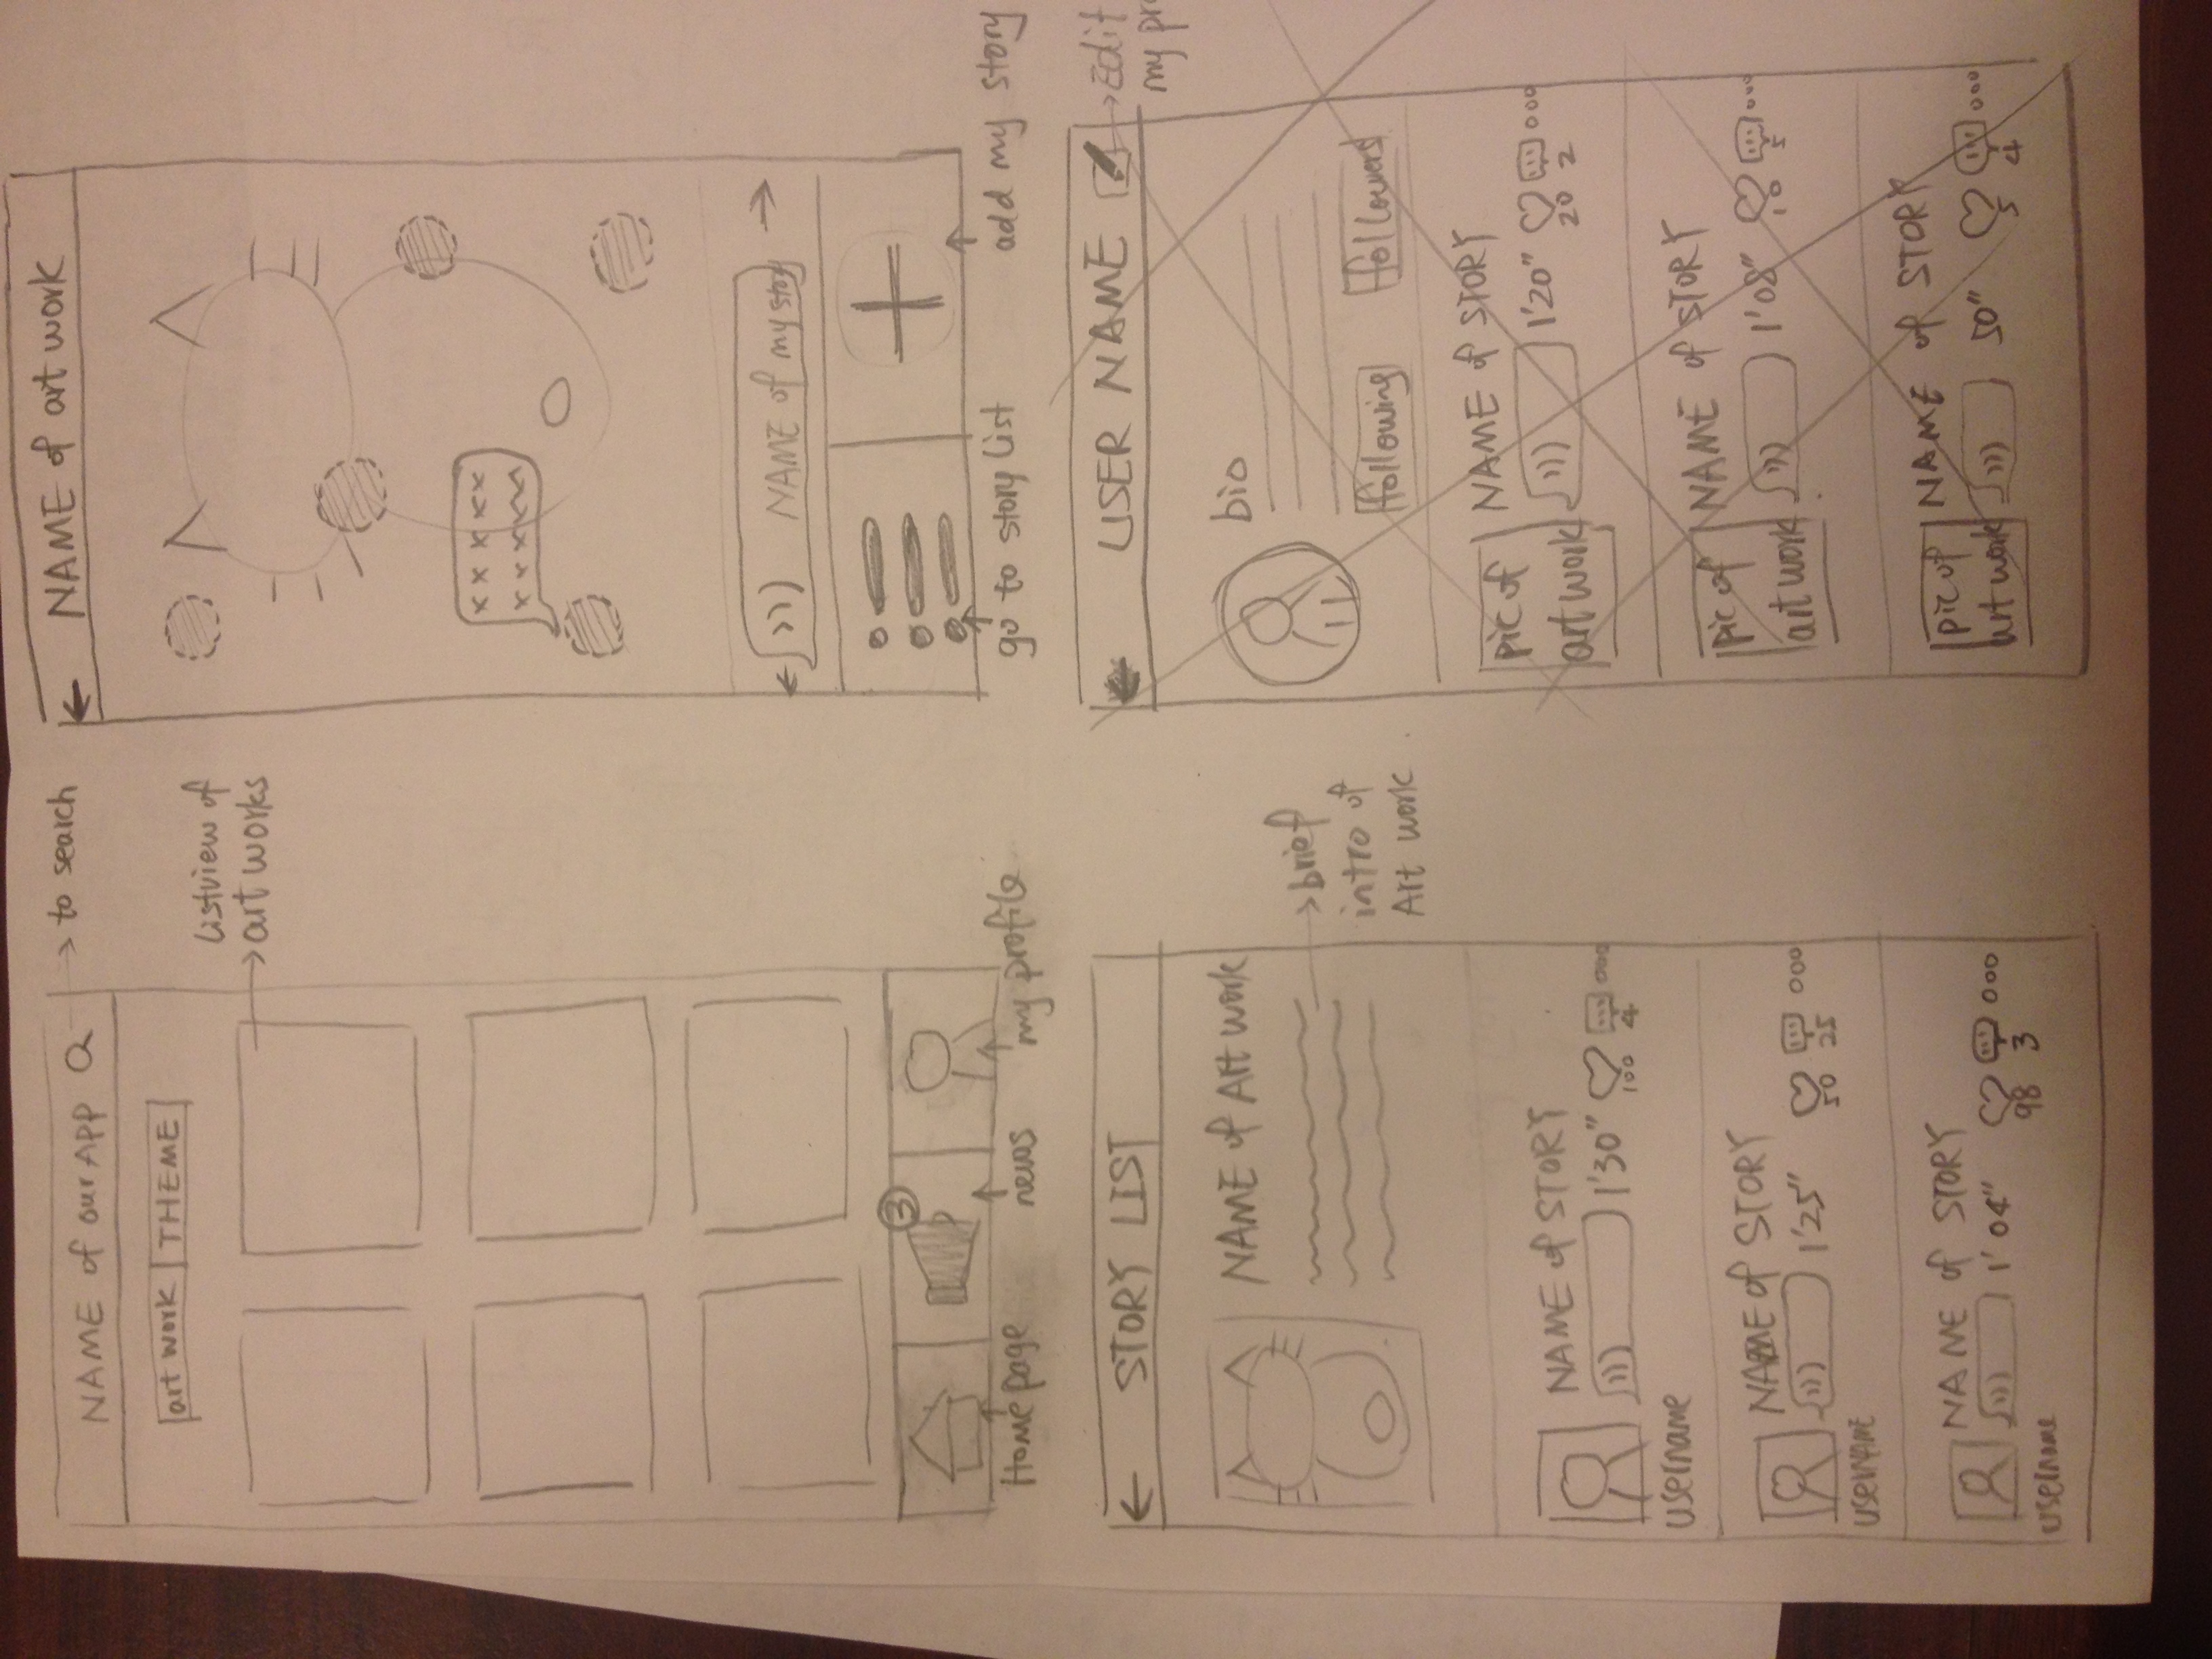 NAME of our APP
to search
art work THEME
Listview of
art works
3
Home page
news
my profile
NAME of art work
x x x x x
NAME of my story
go to story list
add my story
STORY LIST
NAME of Art work
brief
intro of
Art work
NAME of STORY
1'30"
100 4
username
NAME of STORY
1'25"
50 25
userNAME
NAME of STORY
1'04"
98 3
username
USER NAME
Edit
my
bio
following followers
pic of
art work
NAME of STORY
1'20"
20 2
pic of
art work
NAME of STORY
1'08"
10 5
pic of
art work
NAME of STORY
50"
5 4